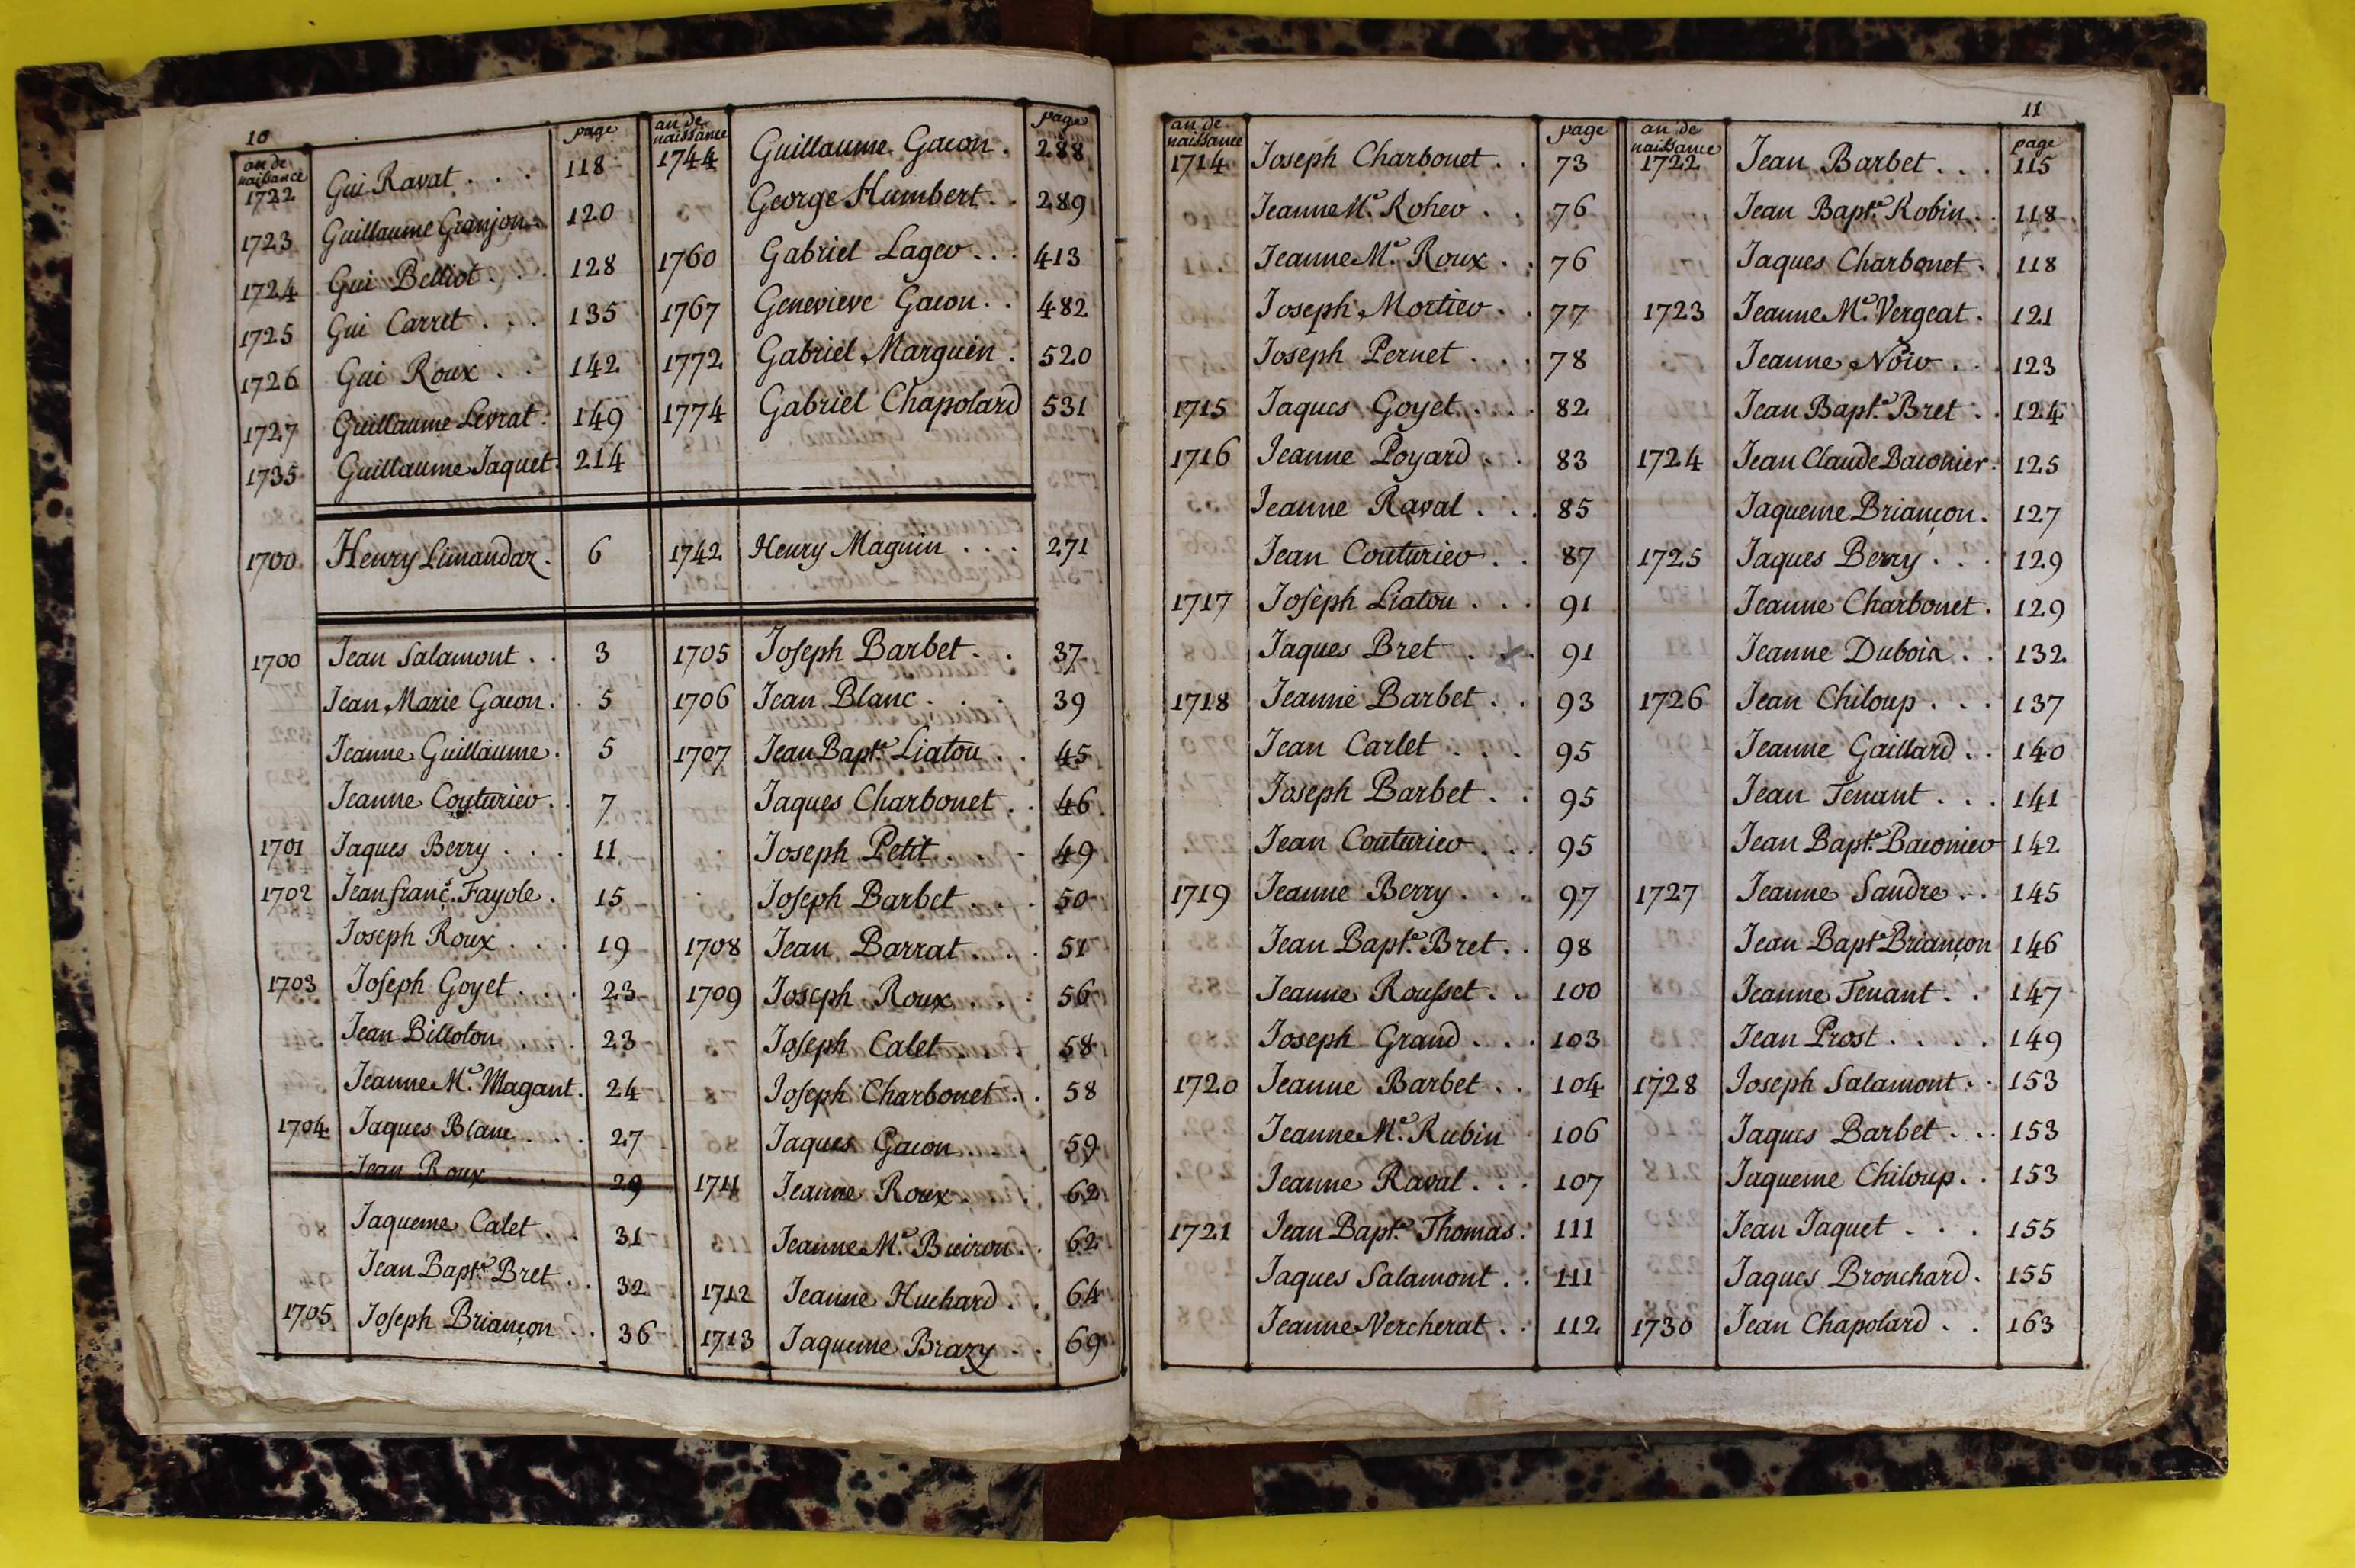 10
an de naissance
page
1722 Gui Ravat . . . 118
1723 Guillaume Granjon . 120
1724 Gui Belliot . . . 128
1725 Gui Carret . . . 135
1726 Gui Roux . . 142
1727 Guillaume Levrat . 149
1735 Guillaume Jaquet . 214
1700 Henry Limandaz . 6
1700 Jean Salamont . . 3
Jean Marie Gacon . . 5
Jeanne Guillaume . 5
Jeanne Couturier . . 7
1701 Jaques Berry . . . 11
1702 Jean franç.s Fayole . 15
Joseph Roux . . . 19
1703 Joseph Goyet . . . 23
Jean Billoton . . . 23
Jeanne M.e Magant . 24
1704 Jaques Blanc . . . 27
Jean Roux . . . 29
Jaqueme Calet . . 31
Jean Bapt.e Bret . . 32
1705 Joseph Briançon . . 36
an de naissance
page
1744 Guillaume Gacon . 288
George Humbert . . 289
1760 Gabriel Lager . . . 413
1767 Genevieve Gacon . . 482
1772 Gabriel Marguin . 520
1774 Gabriel Chapolard 531
1742 Henry Maguin . . . 271
1705 Joseph Barbet . . 37
1706 Jean Blanc . . . 39
1707 Jean Bapt.e Liatou . . 45
Jaques Charbonet . . 46
Joseph Petit . . . 49
Joseph Barbet . . . 50
1708 Jean Barrat . . . 51
1709 Joseph Roux . . . 56
Joseph Calet . . . 58
Joseph Charbonet . . 58
Jaques Gacon . . . 59
1711 Jeanne Roux . . . 62
Jeanne M.e Buiron . . 62
1712 Jeanne Huchard . . 64
1713 Jaqueme Brazy . . 69
11
an de naissance
page
1714 Joseph Charbonet . . 73
Jeanne M.e Roher . . 76
Jeanne M.e Roux . . 76
Joseph Mortier . . 77
Joseph Pernet . . . 78
1715 Jaques Goyet . . . 82
1716 Jeanne Poyard . . 83
Jeanne Raval . . . 85
Jean Couturier . . 87
1717 Joseph Liatou . . . 91
Jaques Bret . . . 91
1718 Jeanne Barbet . . 93
Jean Carlet . . . 95
Joseph Barbet . . 95
Jean Couturier . . . 95
1719 Jeanne Berry . . . 97
Jean Bapt.e Bret . . 98
Jeanne Rousset . . 100
Joseph Grand . . . 103
1720 Jeanne Barbet . . 104
Jeanne M.e Rubin 106
Jeanne Raval . . . 107
1721 Jean Bapt.e Thomas . 111
Jaques Salamont . . 111
Jeanne Vercherat . . 112
an de naissance
page
1722 Jean Barbet . . . 115
Jean Bapt.e Robin . . 118
Jaques Charbonet . 118
1723 Jeanne M.e Vergeat . 121
Jeanne Noir . . . 123
Jean Bapt.e Bret . . 124
1724 Jean Claude Baconier . 125
Jaqueme Briançon . 127
1725 Jaques Berry . . . 129
Jeanne Charbonet . 129
Jeanne Dubois . . 132
1726 Jean Chiloup . . . 137
Jeanne Gaillard . . 140
Jean Tenant . . . 141
Jean Bapt.e Baconier 142
1727 Jeanne Sandre . . 145
Jean Bapt.e Briançon 146
Jeanne Tenant . . 147
Jean Prost . . . . 149
1728 Joseph Salamont . . 153
Jaques Barbet . . . 153
Jaqueme Chiloup . . 153
Jean Jaquet . . . 155
Jaques Bronchard . 155
1730 Jean Chapolard . . 163